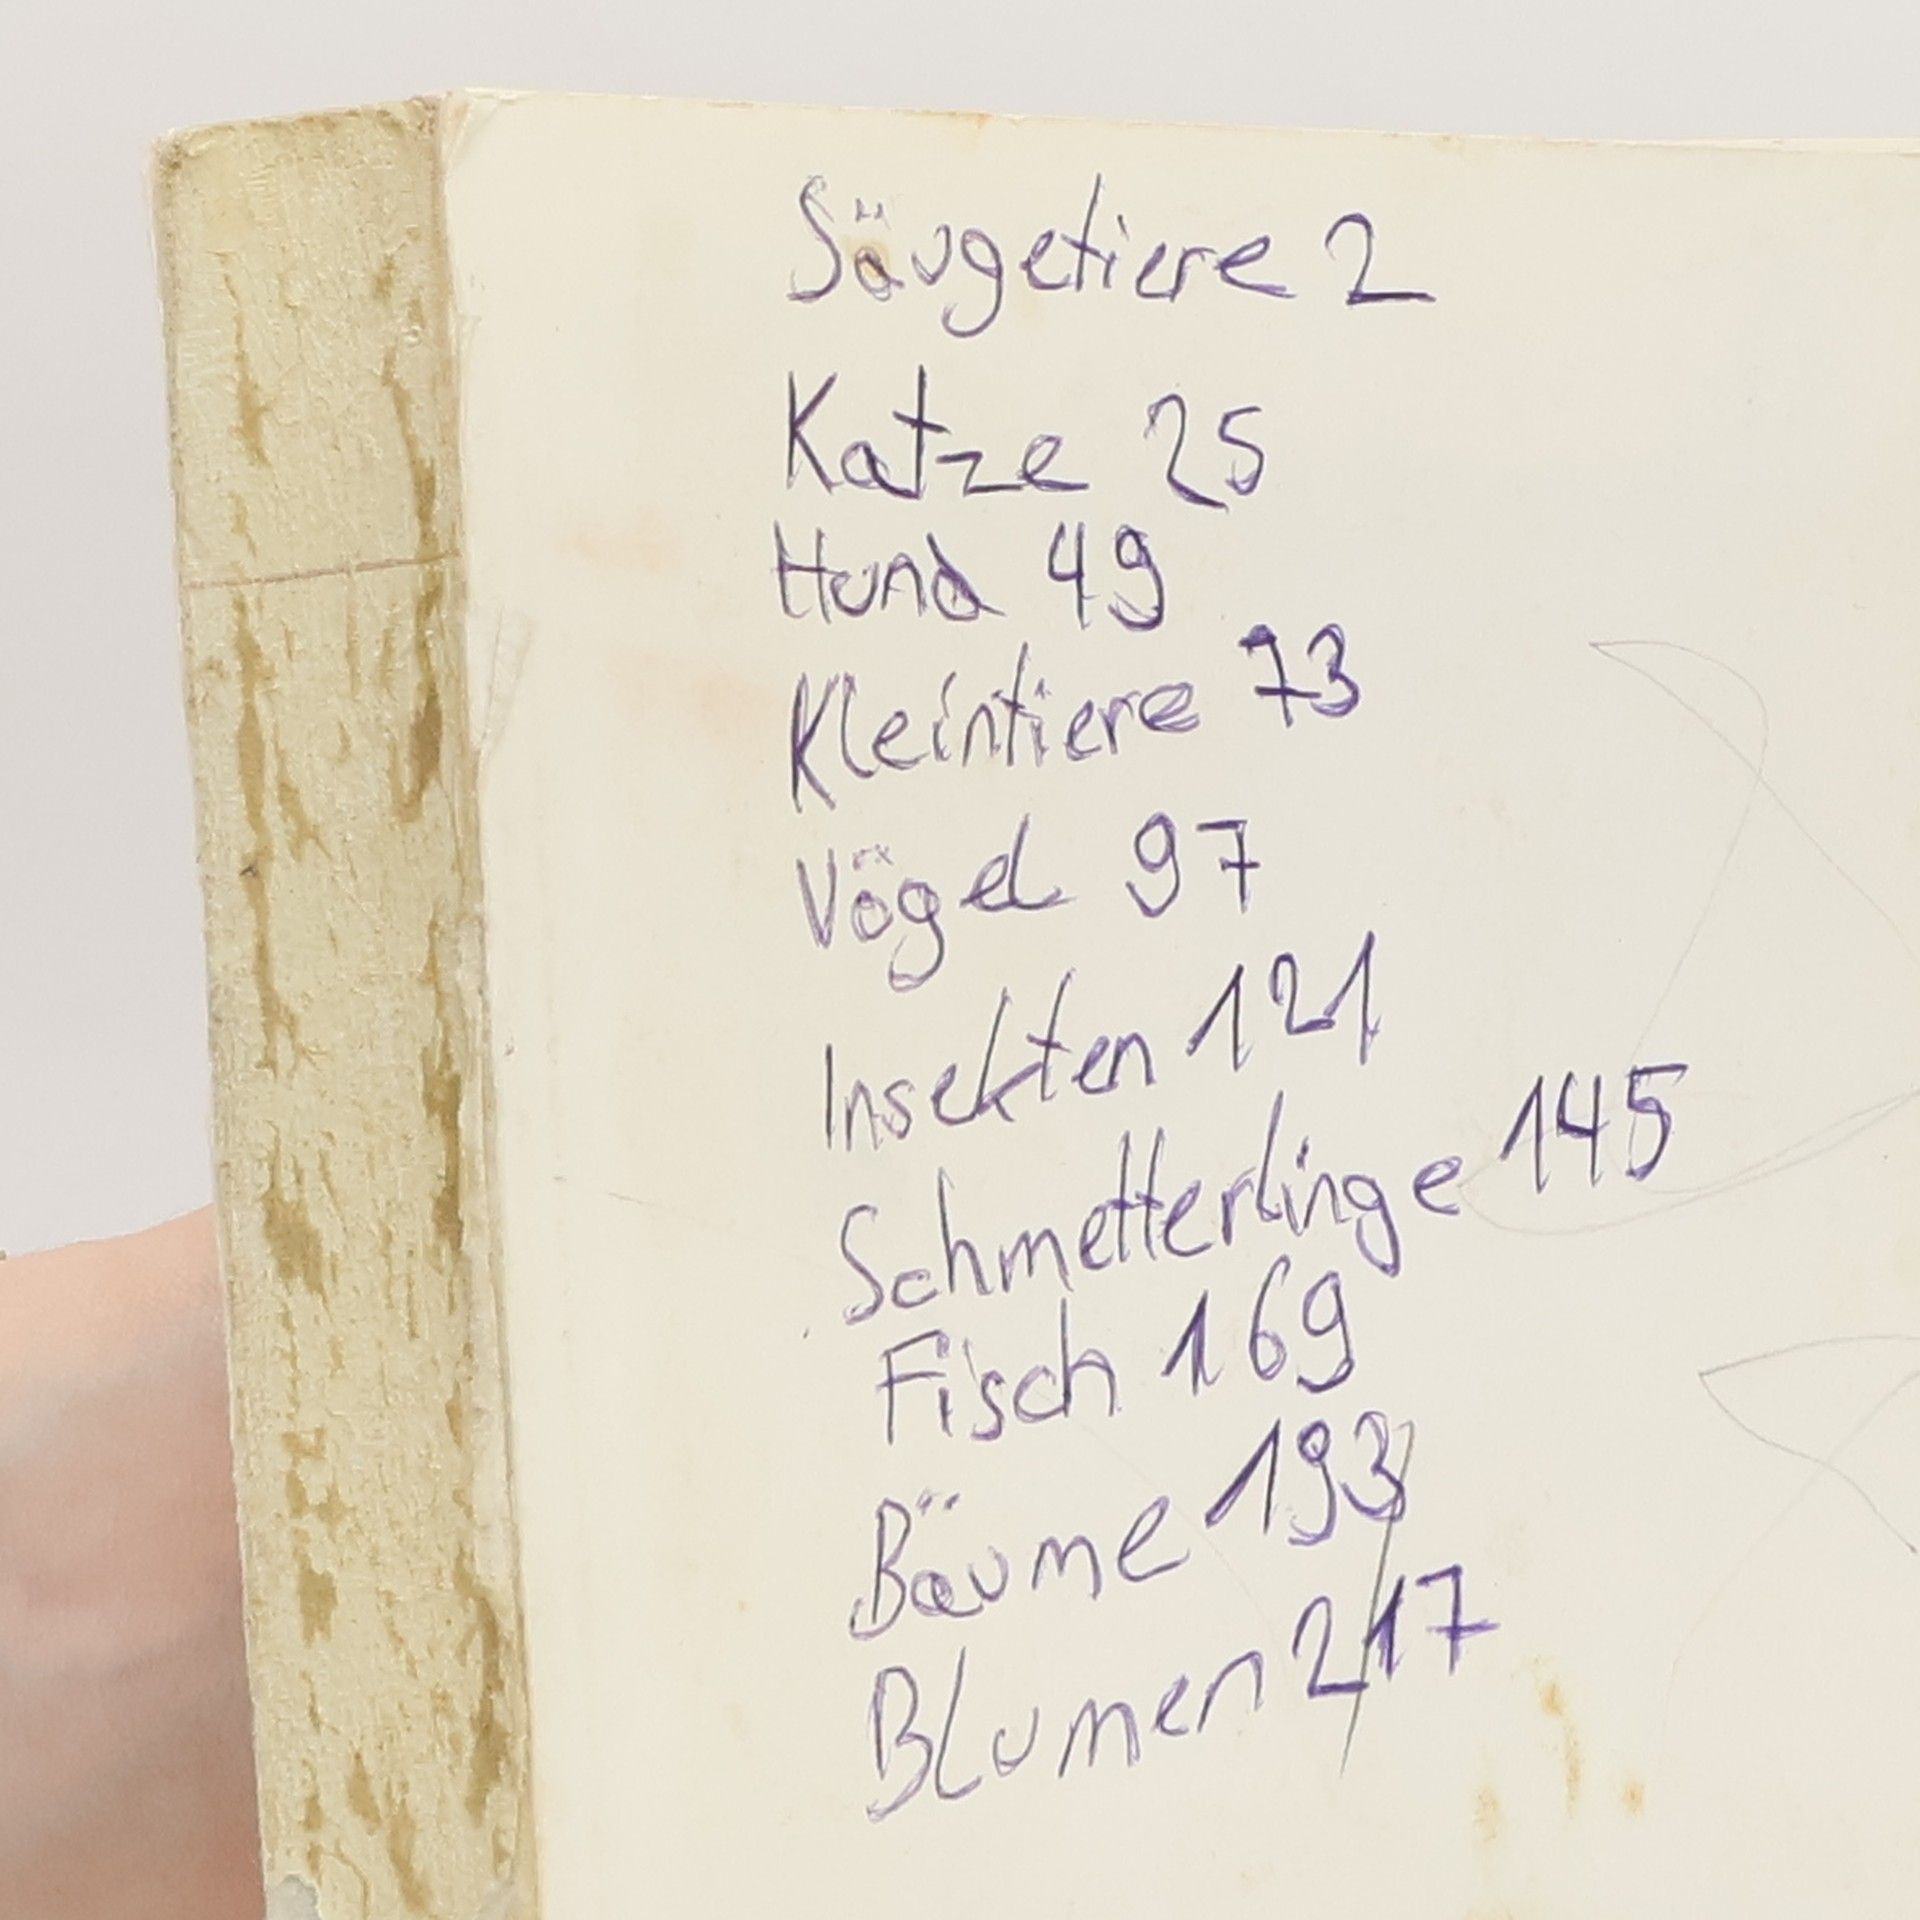 Säugetiere 2
Katze 25
Hund 49
Kleintiere 73
Vögel 97
Insekten 121
Schmetterlinge 145
Fisch 169
Bäume 193
Blumen 217